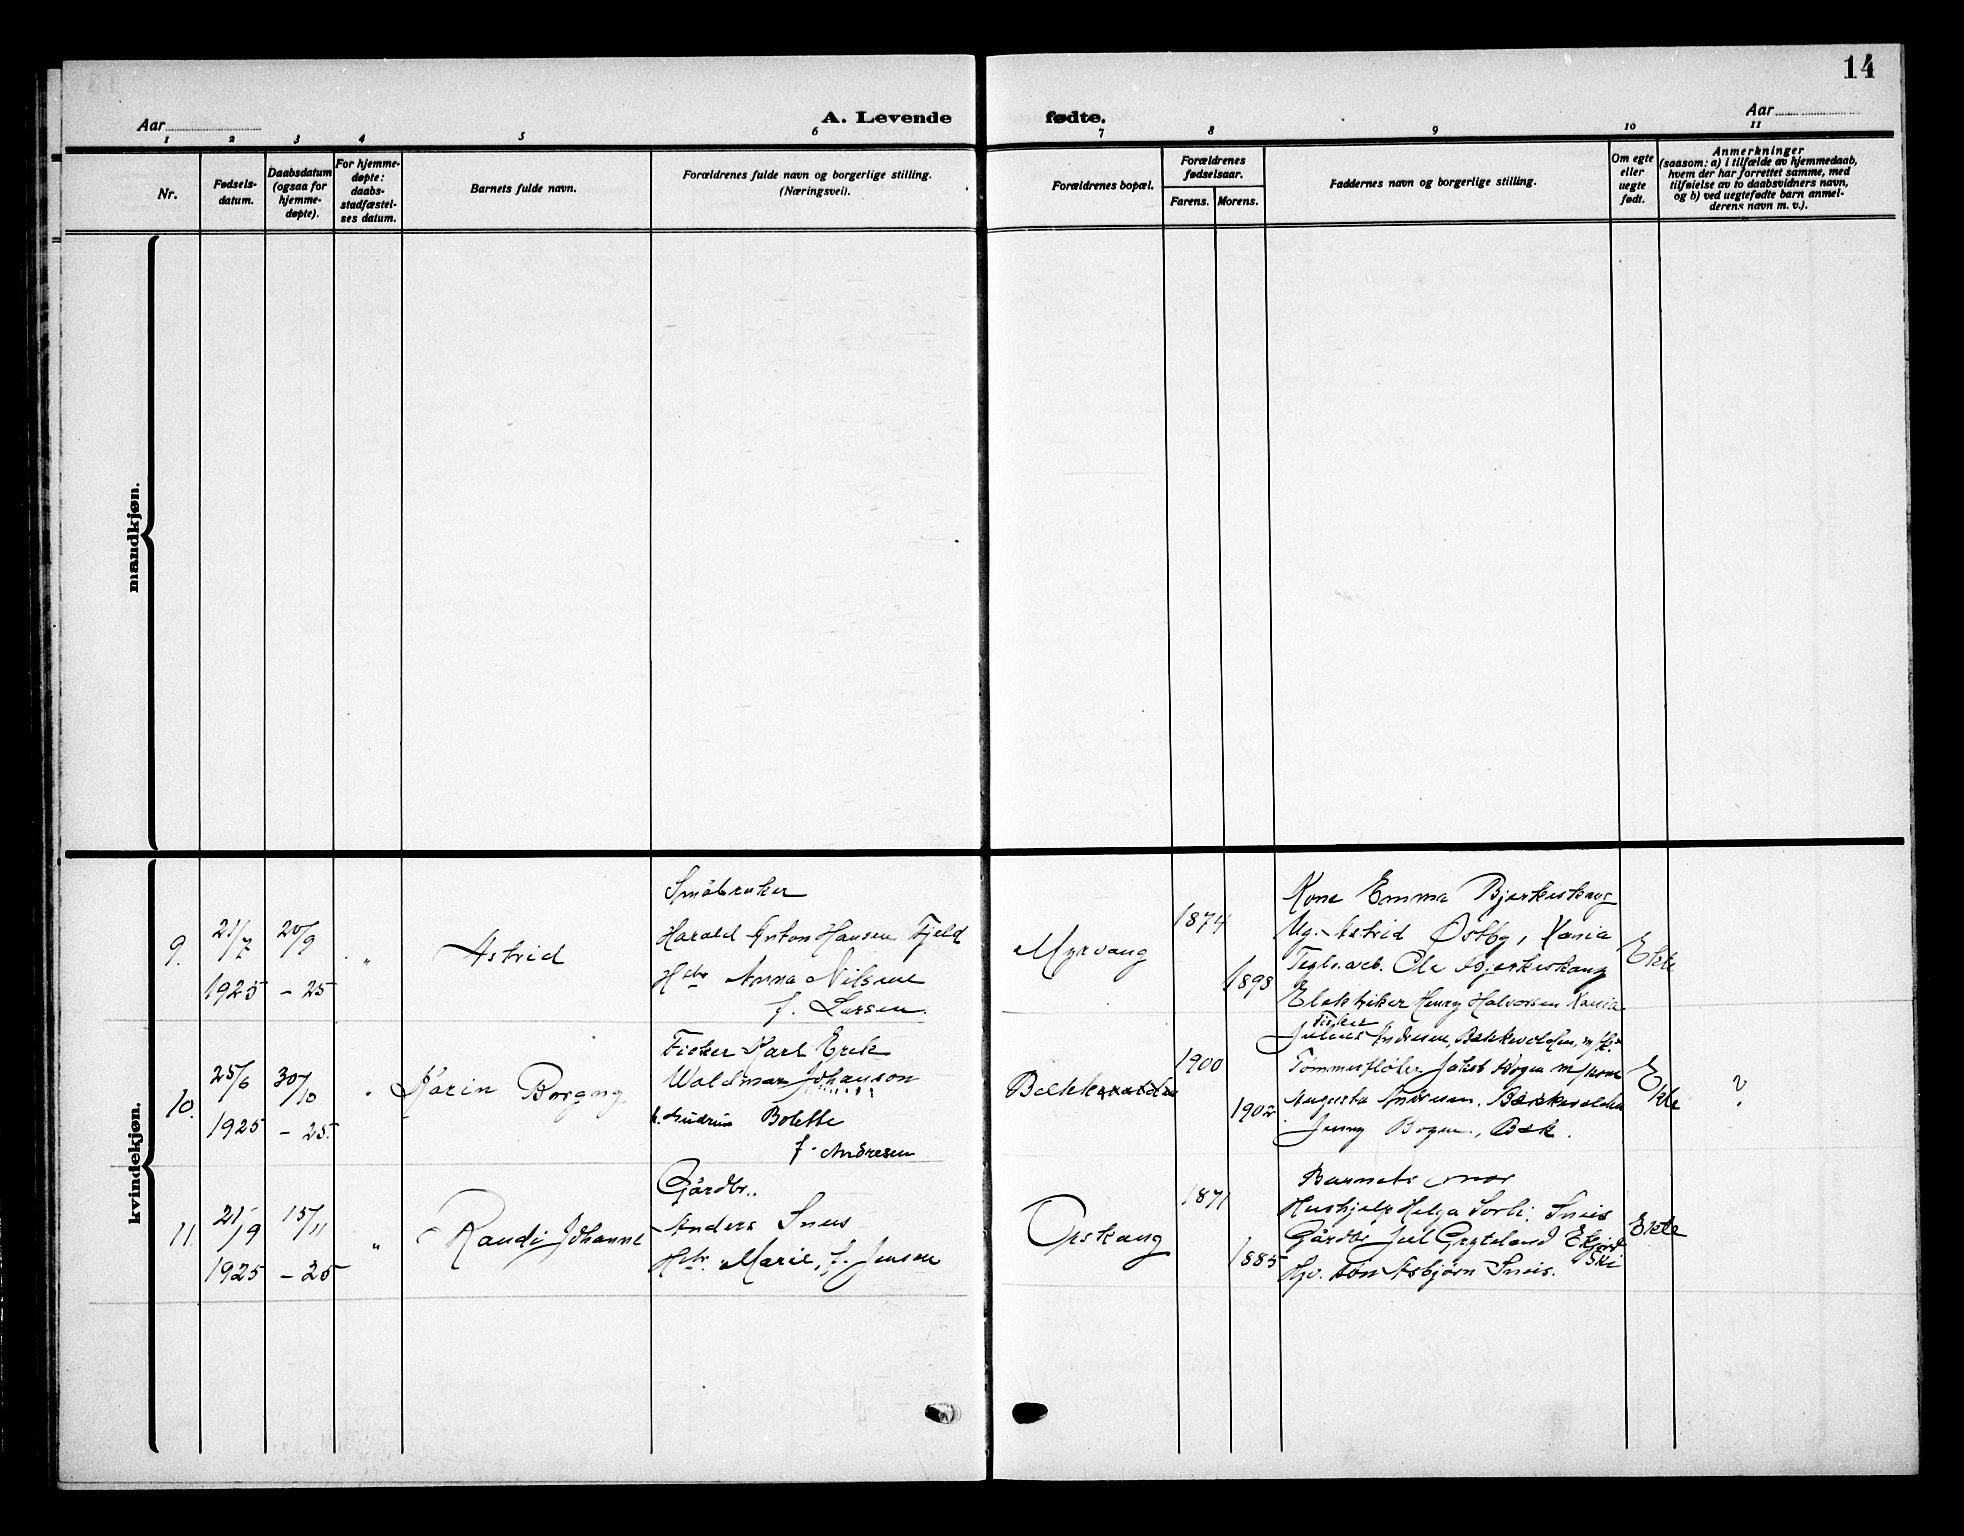 14
Aar
A. Levende
fødte.
Aar
1 2 3 4 5 6 7 8 9 10 11
Nr.
Fødsels-
datum.
Daabsdatum
(ogsaa for
hjemme-
døpte).
For hjemme-
døpte:
daabs-
stadfæstel-
ses datum.
Barnets fulde navn.
Forældrenes fulde navn og borgerlige stilling.
(Næringsvei).
Forældrenes bopæl.
Forældrenes
fødselsaar.
Farens. Morens.
Faddernes navn og borgerlige stilling.
Om egte
eller
uegte
født.
Anmerkninger
(saasom: a) i tilfælde av hjemmedaab,
hvem der har forrettet samme, med
tilføielse av to daabsvidners navn,
og b) ved uegtefødte barn anmel-
derens navn m. v.).
mandkjøn.
kvindekjøn.
9.
21/7
1925
20/9
- 25
"
Astrid
Småbruker
Harald Anton Hansen Fjeld
Hstr Anna Nilsine
f. Larsen.
Myrvang
1874
1898
Kone Emma Bjerkeskaug
Ug. Astrid Østby,
Teglv.arb. Ole Bjerkeskaug
Elektriker Henry Halvorsen
Ekte
10.
25/6
1925
30/10
- 25.
"
Karin Borgny
Fisker Karl Erik
Waldmar Johanson
h. Gudrun Bolette
f. Andresen
Bækkevolden
1900
1902
Fisker
Julius Andresen, Bækkevolden,
Tømmerfløter Jakob Bogen m/kone
Augusta Andresen, Bækkevolden
Jenny Bogen, Bæk.
Ekte
?
11.
21/9
1925
15/11
- 25
"
Randi Johanne
Gårdbr.
Anders Sneis
Hstr. Marie, f. Jensen
Opskaug
1871
1885
Barnets mor
Hushjelp Helga Sorli, Sneis
Gårdbr Juel Gryteland
Ski
Gjv. søn Asbjørn Sneis.
Ekte